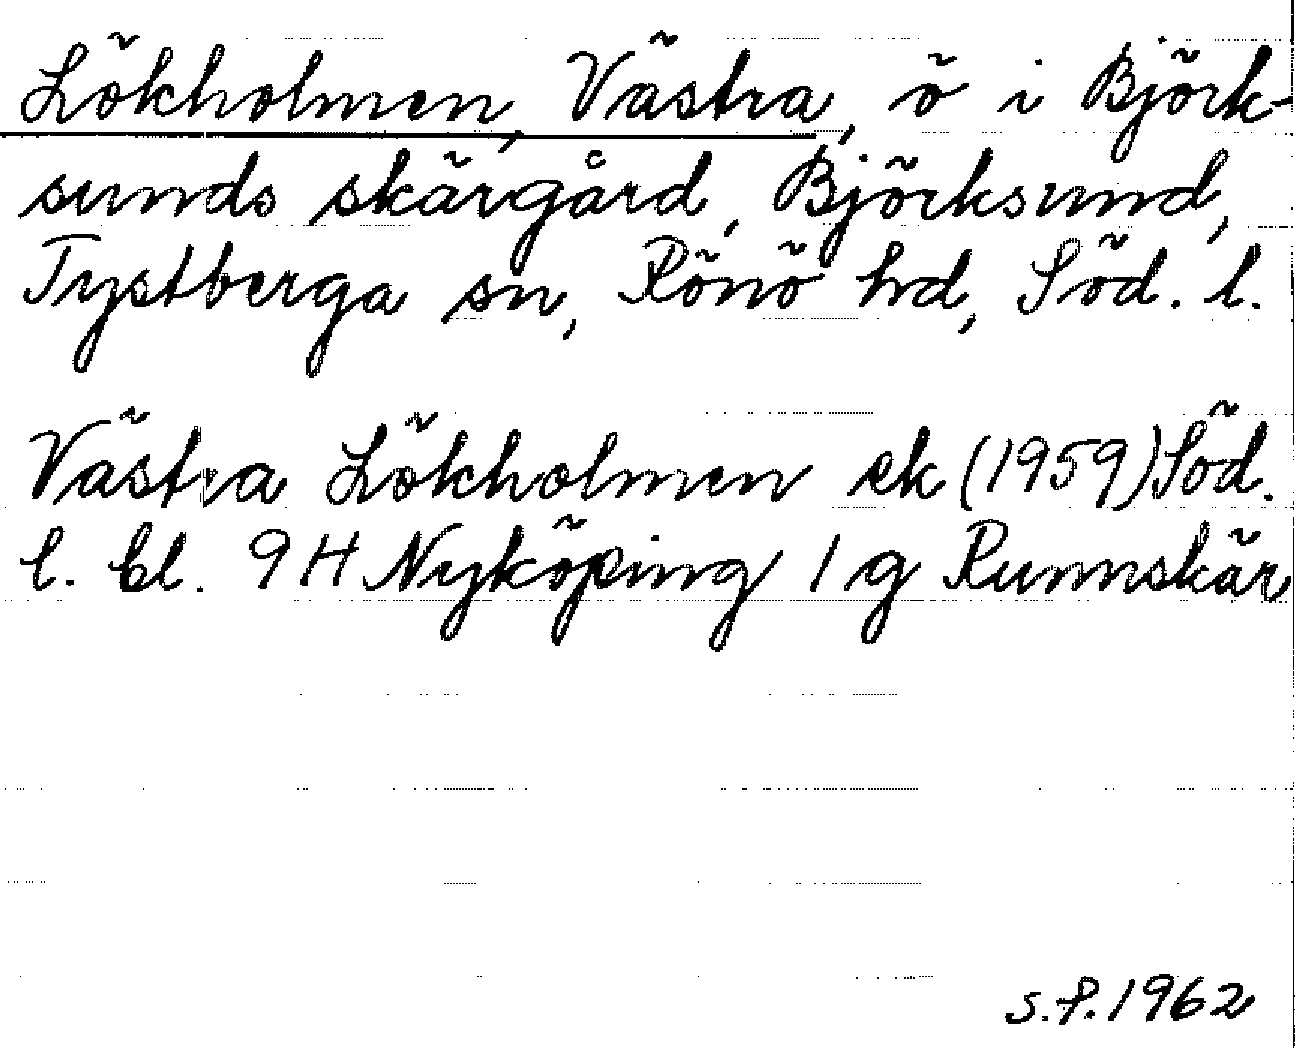 Lökholmen, Västra, ö i Björk-
sunds skärgård, Björksund,
Tystberga sn, Rönö hd, Söd. l.
Västra Lökholmen ek (1959) Söd.
l. bl. 9 H Nyköping 1 g Runnskär
s.f. 1962